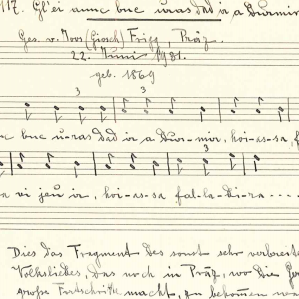 117. Gl'ei aunc buc uras dad ir a Durmir
Ges. v. Joos (Giosch) Frigg, Präz.
22. Juni 1931.
geb. 1869
3 3 3
c buc u-ras dad ir a Dur-mir, hoi-as-sa, f
3 3
a vi jeu ir, hoi-as-sa fal-la-di-ra - - - -
Dies das Fragment des sonst sehr verbreite
Volksliedes, das noch in Präz, wo die
grosse Fortschritte macht, zu bekommen